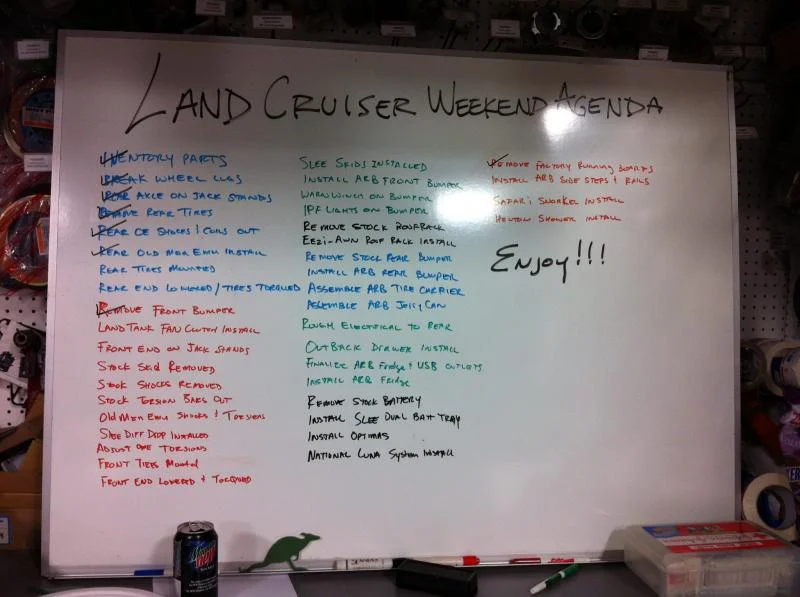 LAND CRUISER WEEKEND AGENDA
INVENTORY PARTS
BREAK WHEEL LUGS
REAR AXLE ON JACK STANDS
REMOVE REAR TIRES
REAR OE SHOCKS & COILS OUT
REAR OLD MAN EMU INSTALL
REAR TIRES MOUNTED
REAR END LOWERED/TIRES TORQUED
REMOVE FRONT BUMPER
LAND TANK FAN CLUTCH INSTALL
FRONT END ON JACK STANDS
STOCK SKID REMOVED
STOCK SHOCKS REMOVED
STOCK TORSION BARS OUT
OLD MAN EMU SHOCKS & TORSIONS
SLEE DIFF DROP INSTALLED
ADJUST OME TORSIONS
FRONT TIRES MOUNTED
FRONT END LOWERED & TORQUED
SLEE SKIDS INSTALLED
INSTALL ARB FRONT BUMPER
WARN WINCH ON BUMPER
IPF LIGHTS ON BUMPER
REMOVE STOCK ROOF RACK
EEZI-AWN ROOF RACK INSTALL
REMOVE STOCK REAR BUMPER
INSTALL ARB REAR BUMPER
ASSEMBLE ARB TIRE CARRIER
ASSEMBLE ARB JERRY CAN
ROUGH ELECTRICAL TO REAR
OUTBACK DRAWER INSTALL
FINALIZE ARB FRIDGE & USB OUTLETS
INSTALL ARB FRIDGE
REMOVE STOCK BATTERY
INSTALL SLEE DUAL BATT TRAY
INSTALL OPTIMAS
NATIONAL LUNA SYSTEM INSTALL
REMOVE FACTORY RUNNING BOARDS
INSTALL ARB SIDE STEPS & RAILS
SAFARI SNORKEL INSTALL
HELTON SHOWER INSTALL
ENJOY!!!